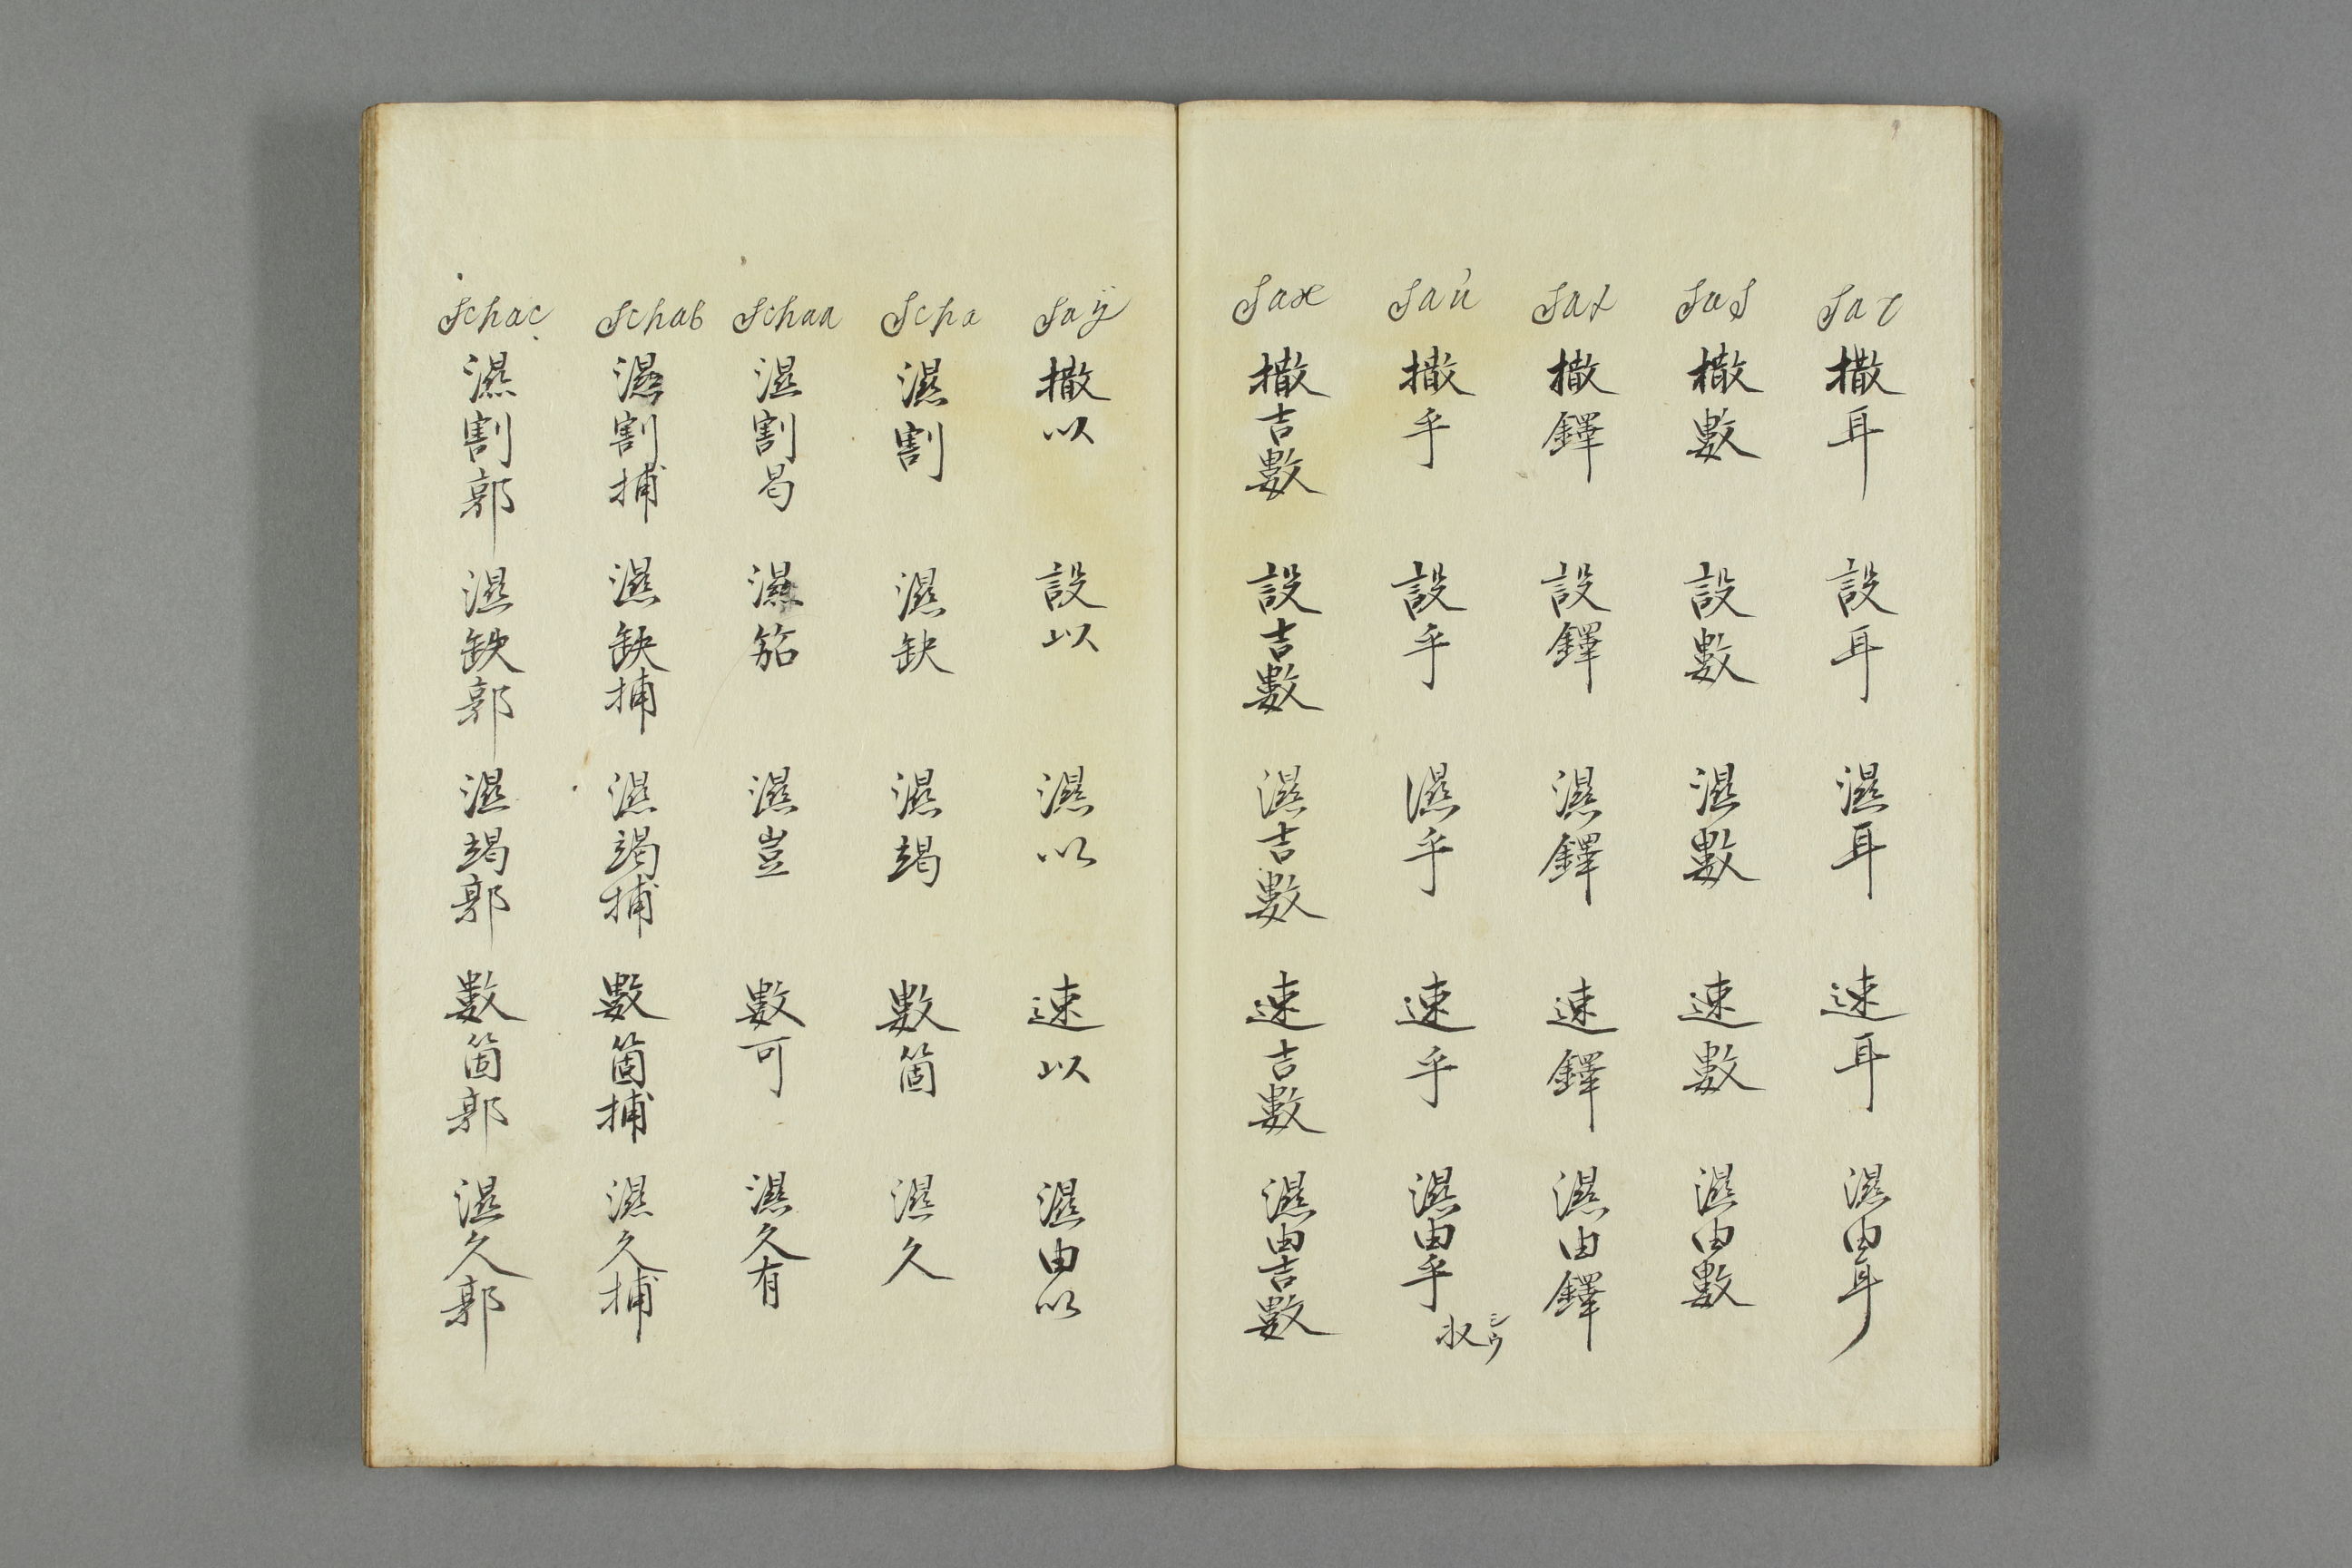 Sar
撒耳 設耳 濕耳 速耳 濕由耳
Sas
撒數 設數 濕數 速數 濕由數
Sat
撒鐸 設鐸 濕鐸 速鐸 濕由鐸
Saú
撒乎 設乎 濕乎 速乎 濕由乎
収シウ
Sax
撒吉數 設吉數 濕吉數 速吉數 濕由吉數
Saÿ
撒以 設以 濕以 速以 濕由以
Scha
濕割 濕缺 濕竭 數箇 濕久
Schaa
濕割曷 濕 濕豈 數可 濕久有
Schab
濕割捕 濕缺捕 濕竭捕 數箇捕 濕久捕
Schac
濕割郭 濕缺郭 濕竭郭 數箇郭 濕久郭